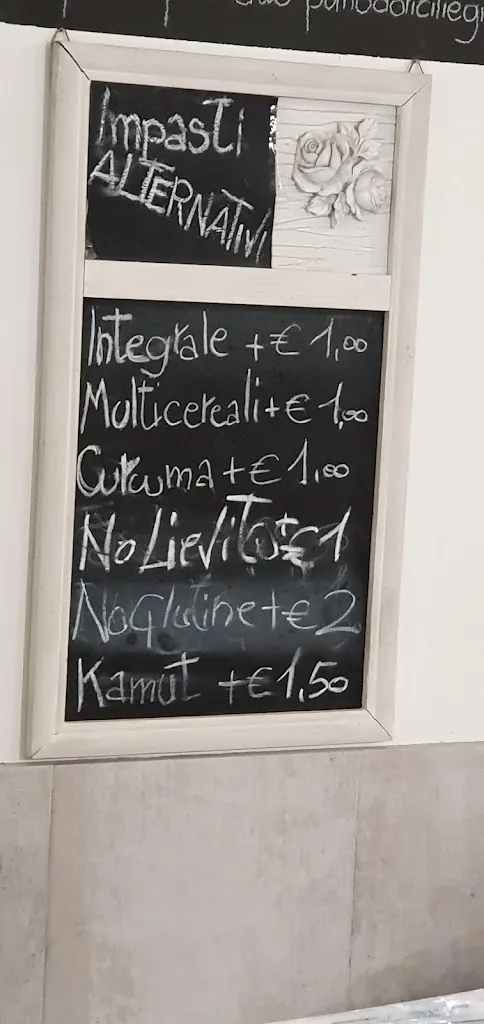 Impasti
ALTERNATIVI
Integrale + € 1,00
Multicereali + € 1,00
Curcuma + € 1,00
No Lievito + € 1
No glutine + € 2
Kamut + € 1,50